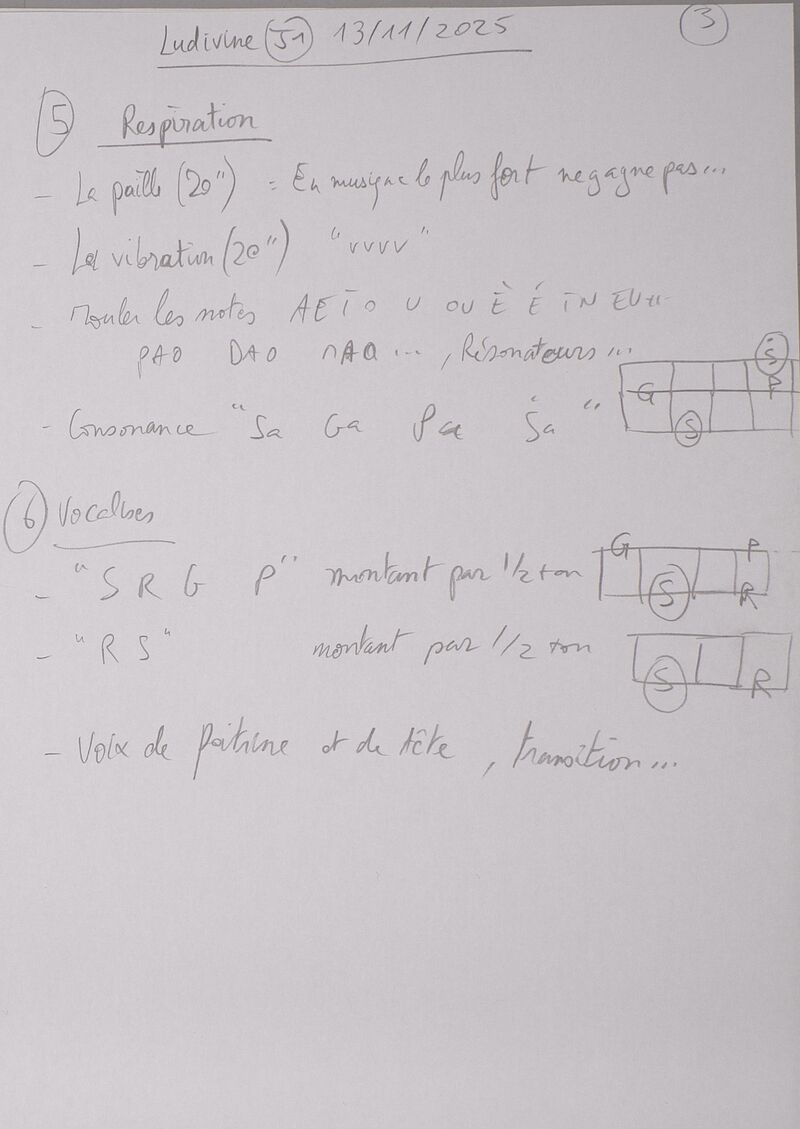 Ludivine J1 13/11/2025
3
5 Respiration
- La paille (20") = En musique le plus fort ne gagne pas...
- La vibration (20") "vvvv"
- Mouler les notes A E I O U OU È É IN EU...
PAO DAO MAO ..., Résonateurs...
- Consonance "Sa Ga Pa Ṡa"
Ṡ
G P
S
6 Vocalises
- "S R G P" montant par 1/2 ton
G P
S R
- "R S" montant par 1/2 ton
S R
- Voix de Poitrine et de tête, transition...